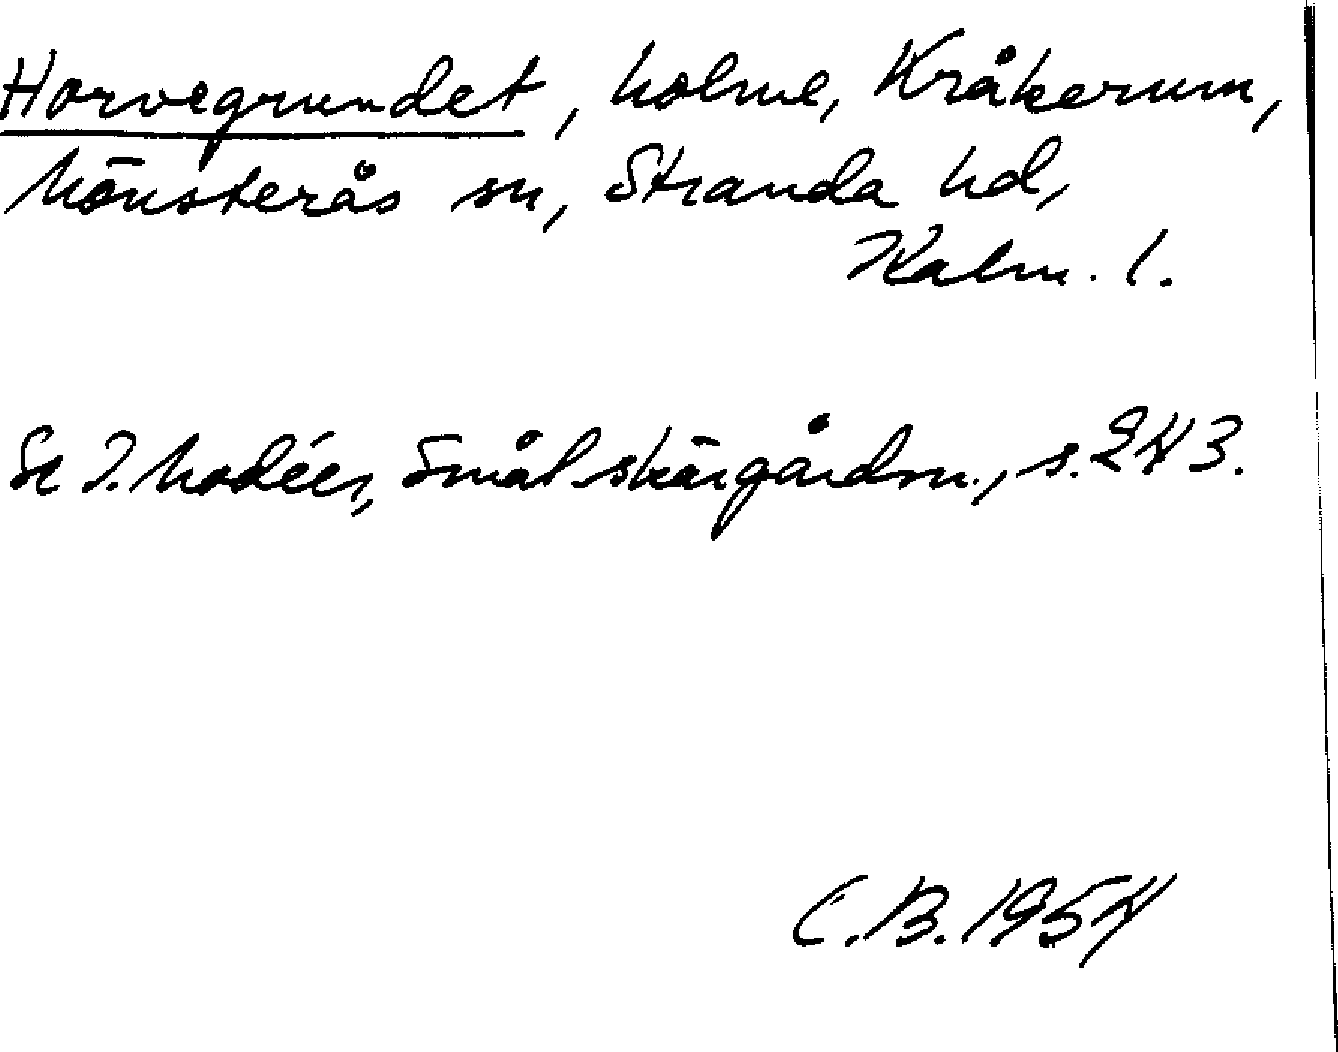 Horvegrundet, holme, Kråkerum,
Mönsterås sn, Stranda hd,
Kalm. l.
Se I. Modéer, Smål. skärgårdsn., s. 243.
C.B. 1954